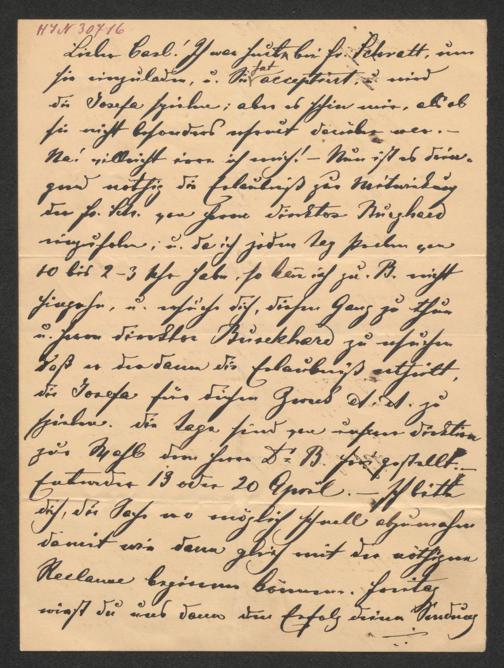 HIN 30716
Lieber Carl! Ich war heute bei Fr. Schratt, um
sie einzuladen, u. Sie hat acceptirt, u. wird
die Josefa spielen; aber es schien mir, als ob
sie nicht besonders erfreut darüber wär. –
Na! vielleicht irre ich mich! – Nun ist es drin-
gend nöthig die Erlaubniß zur Mitwirkung
der Fr. Sch. von Herrn Direktor Burghard
einzuholen; u. da ich jeden Tag Proben von
10 bis 2–3 Uhr habe, so kann ich zu B. nicht
hingehn, u. ersuche dich, diesen Gang zu thun
u. Herrn Direktor Burckhard zu ersuchen
daß er der Dame die Erlaubniß ertheilt,
die Josefa für diesen Zweck etc. etc. zu
spielen. Die Tage sind von unserer Direktion
zur Wahl dem Herrn Dr. B. gestellt. –
Entweder 19 oder 20 April. – Ich bitte
dich, die Sache wo möglich schnell abzumachen
damit wir dann gleich mit der nöthigen
Reclame beginnen können. Freitag
wirst du uns dann den Erfolg deiner Sendung